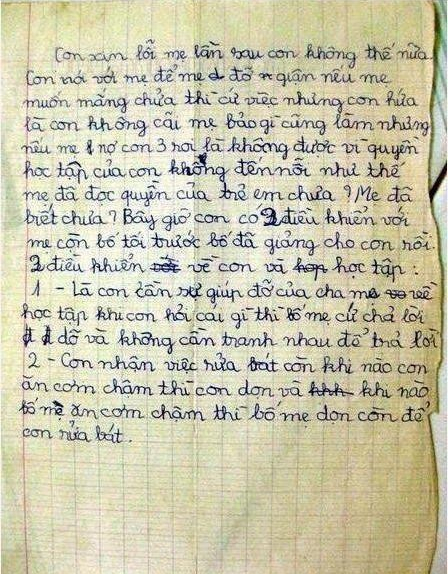 Con xin lỗi mẹ lần sau con không thế nữa.
Con nói với mẹ để mẹ đỡ giận nếu mẹ
muốn mắng chửa thì cứ việc nhưng con hứa
là con không cãi mẹ bảo gì cũng làm nhưng
nếu mẹ nợ con 3 roi là không được vì quyền
học tập của con không đến nỗi như thế
mẹ đã đọc quyền của trẻ em chưa? Mẹ đã
biết chưa? Bây giờ con có 2 điều khiển với
mẹ còn bố tối trước bố đã giảng cho con rồi.
2 điều khiển về con và học tập:
1 - Là con cần sự giúp đỡ của cha mẹ về
học tập khi con hỏi cái gì thì bố mẹ cứ chả lời
dỗ và không cần tranh nhau để trả lời
2 - Con nhận việc rửa bát còn khi nào con
ăn cơm chậm thì con dọn và khi nào
bố mẹ ăn cơm chậm thì bố mẹ dọn còn để
con rửa bát.